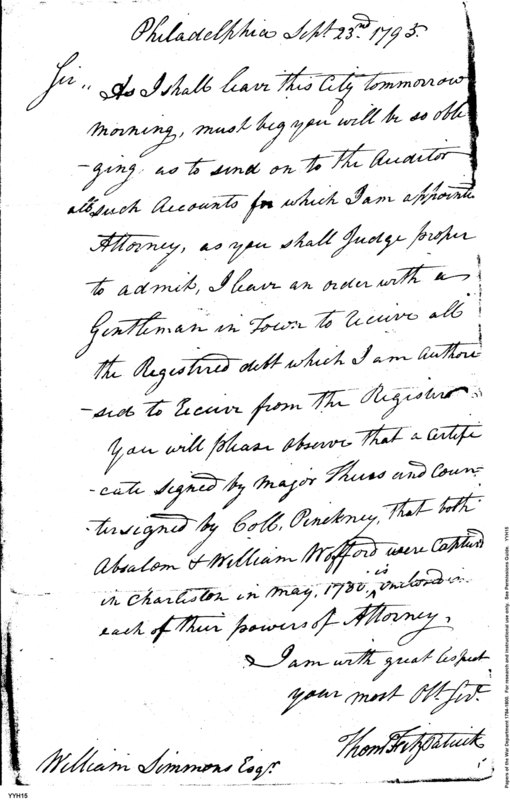 Philadelphia Sept. 23rd 1795.
Sir,, As I shall leave this City tommorrow
morning, must beg you will be so obli
-ging as to send on to the Auditor
all such Accounts for which I am appointe
Attorney, as you shall Judge proper
to admit, I leave an order with a
Gentleman in Town to receive all
the Registered debt which I am authore
-sed to receive from the Register
You will please observe that a Certifi
-cate signed by Major Theus and Coun-
tersigned by Coll. Pinckney, that both
Absalom & William Wofford were Captured
in Charleston in May, 1780, is enclosed in
each of their powers of Attorney,
I am with great respect
your most Obt. Servt.
Thom. FitzPatrick
William Simmons Esqr.
YYH15
Papers of the War Department 1784-1800. For research and instructional use only. See Permissions Guide. YYH15